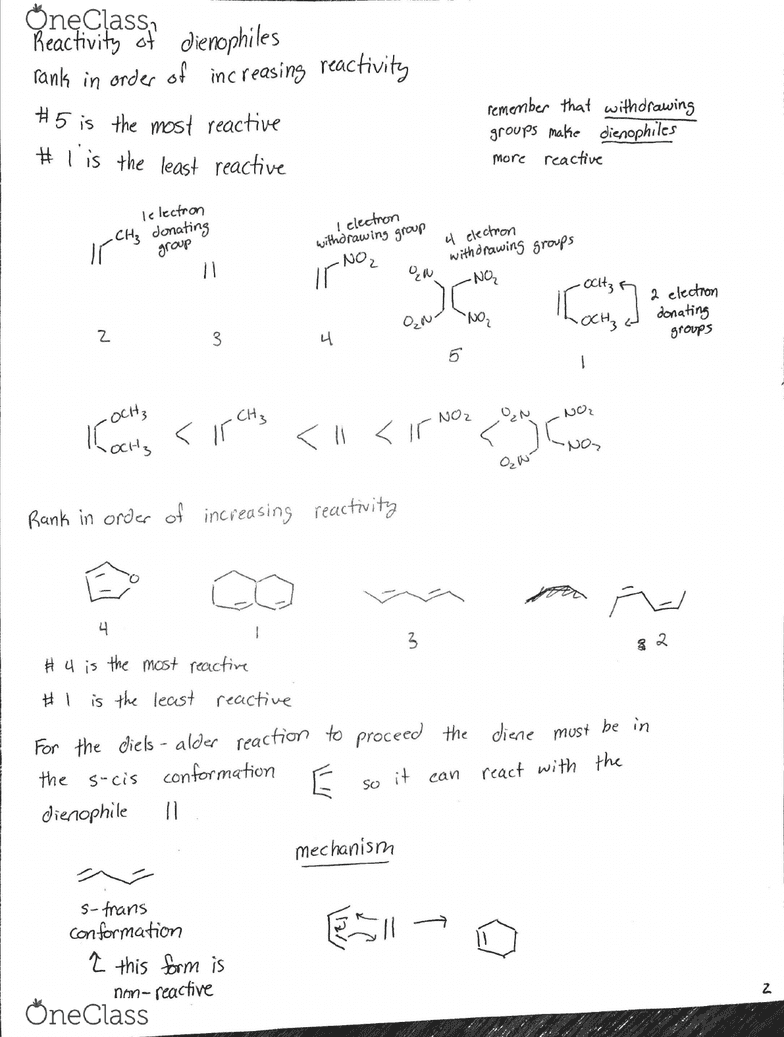 OneClass
Reactivity of dienophiles
rank in order of increasing reactivity
#5 is the most reactive
#1 is the least reactive
remember that withdrawing
groups make dienophiles
more reactive
1 electron
donating
group
CH3
1 electron
withdrawing group
NO2
4 electron
withdrawing groups
O2N NO2
O2N NO2
OCH3
OCH3
2 electron
donating
groups
2 3 4 5 1
OCH3
OCH3 < CH3 < < NO2 < O2N NO2
O2N NO2
Rank in order of increasing reactivity
O
4 1 3 2
#4 is the most reactive
#1 is the least reactive
For the diels-alder reaction to proceed the diene must be in
the s-cis conformation so it can react with the
dienophile
mechanism
s-trans
conformation
this form is
non-reactive
2
OneClass